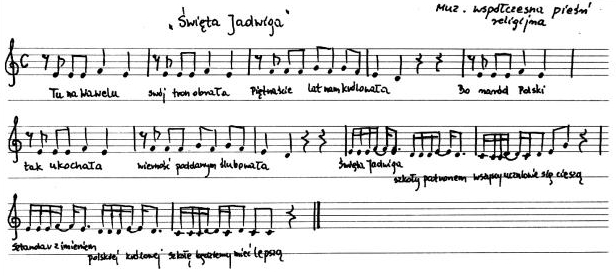 „Święta Jadwiga"
Muz. współczesna pieśń
religijna
Tu na Wawelu swój tron obrała Piętnaście lat nam królowała Bo naród Polski
tak ukochała wierność poddanym ślubowała Święta Jadwiga
szkoły patronem wszyscy uczniowie się cieszą
Sztandar z imieniem
polskiej królowej szkołę będziemy mieć lepszą